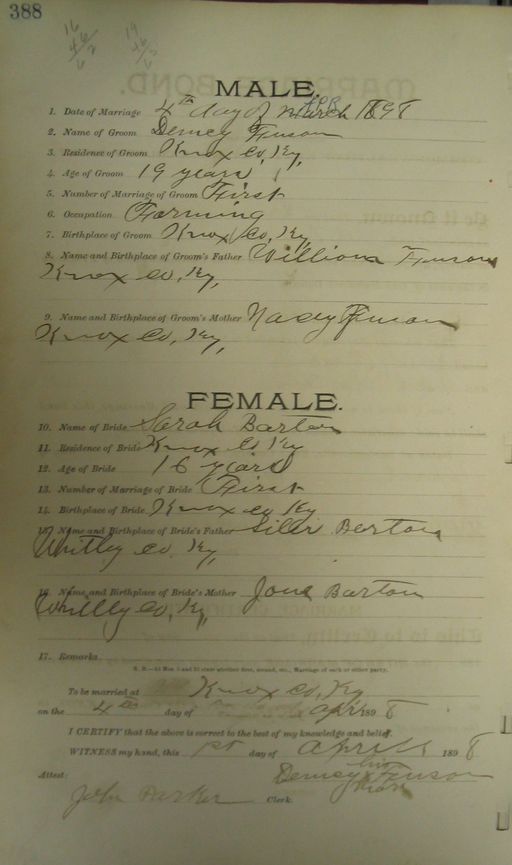 388
16
19
MALE.
1. Date of Marriage 4th day of March APR 1898
2. Name of Groom Demcy Finson
3. Residence of Groom Knox Co, Ky,
4. Age of Groom 19 years
5. Number of Marriage of Groom First
6. Occupation Farming
7. Birthplace of Groom Knox Co, Ky,
8. Name and Birthplace of Groom's Father William Finson
Knox Co, Ky,
9. Name and Birthplace of Groom's Mother Nacy Finson
Knox Co, Ky,
FEMALE.
10. Name of Bride Sarah Barton
11. Residence of Bride Knox Co Ky
12. Age of Bride 16 years
13. Number of Marriage of Bride First
14. Birthplace of Bride Knox Co Ky
15. Name and Birthplace of Bride's Father Siler Barton
Whitley Co, Ky,
16. Name and Birthplace of Bride's Mother Jane Barton
Whitley Co, Ky,
17. Remarks
To be married at Knox Co, Ky
on the 4th day of April 1898
I CERTIFY that the above is correct to the best of my knowledge and belief.
WITNESS my hand, this 1st day of April 1898
Demcy Finson
his
x
Mark
Attest:
John Parker Clerk.